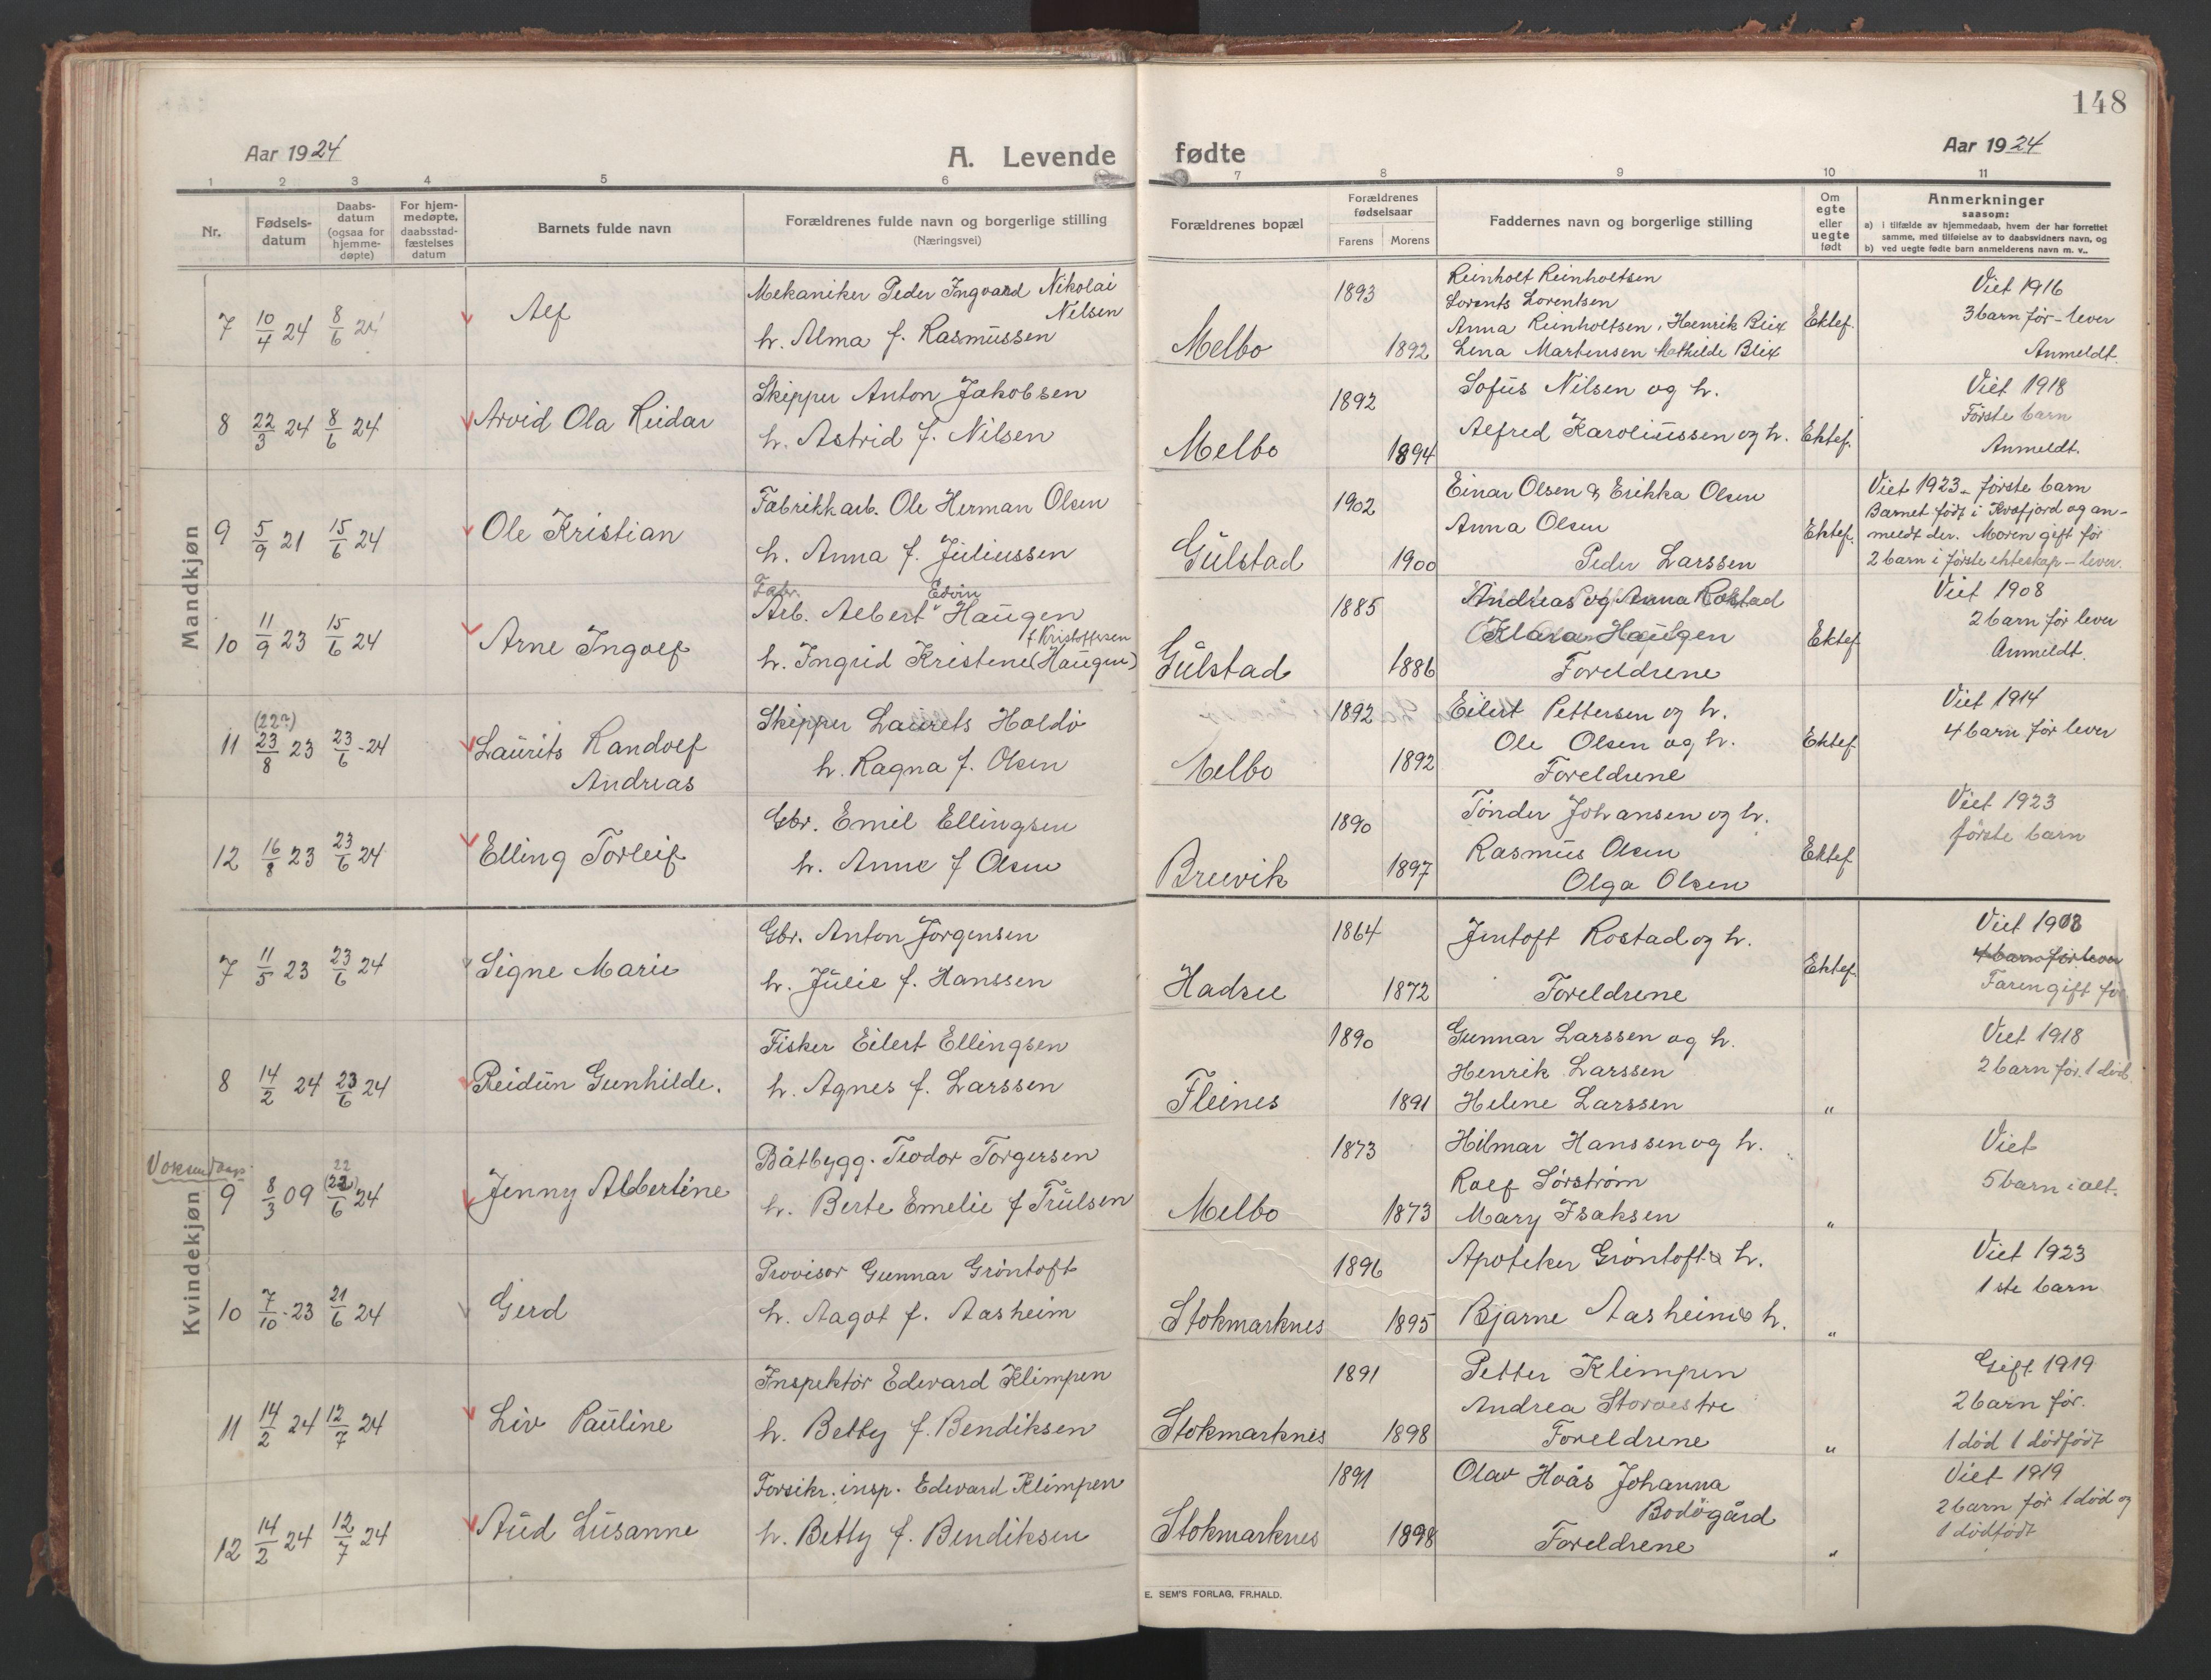 148
Aar 1924
A. Levende fødte
Aar 1924
1 2 3 4 5 6 7 8 9 10 11
Nr.
Fødsels-
datum
Daabs-
datum
(ogsaa for
hjemme-
døpte)
For hjem-
medøpte,
daabsstad-
fæstelses
datum
Barnets fulde navn
Forældrenes fulde navn og borgerlige stilling
(Næringsvei)
Forældrenes bopæl
Forældrenes
fødselsaar
Farens Morens
Faddernes navn og borgerlige stilling
Om
egte
eller
uegte
født
Anmerkninger
saasom:
a) i tilfælde av hjemmedaab, hvem der har forrettet
samme, med tilføielse av to daabsvidners navn, og
b) ved uegte fødte barn anmelderens navn m. v..
Mandkjøn
7 10/4 24 8/6 24 Alf
Mekaniker Peder Ingvard Nikolai
Nilsen
h. Alma f. Rasmussen
Melbo 1893 1892
Reinholt Reinholtsen
Lorents Lorentsen
Anna Reinholtsen, Henrik Blix
Lena Martensen Mathilde Blix
Ektef.
Viet 1916
3 barn før - lever
Anmeldt.
8 22/3 24 8/6 24 Arvid Ola Reidar
Skipper Anton Jakobsen
h. Astrid f. Nilsen
Melbo 1892 1894
Sofus Nilsen og h.
Alfred Karoliussen og h.
Ektef.
Viet 1918
Første barn
Anmeldt.
9 5/9 21 15/6 24 Ole Kristian
Fabrikkarb. Ole Herman Olsen
h. Anna f. Juliussen
Gulstad 1902 1900
Einar Olsen & Erikka Olsen
Anna Olsen
Peder Larssen
Ektef.
Viet 1923 - første barn
Barnet født i Kvæfjord og an-
meldt der. Moren gift før
2 barn i første ekteskap - lever.
10 11/9 23 15/6 24 Arne Ingolf
Fabr. Edvin
Arb. Albert Haugen
f. Kristoffersen
h. Ingrid Kristene (Haugen)
Gulstad 1885 1886
Andreas og Anna Rostad
Klara Haugen
Foreldrene
Ektef
Viet 1908
2 barn før lever
Anmeldt.
11 (22?) 23/8 23 23/6 - 24 Laurits Randolf
Andreas
Skipper Laurits Holdö
h. Ragna f. Olsen
Melbo 1892 1892
Eilert Pettersen og h.
Ole Olsen og h.
Foreldrene
Ektef
Viet 1914
4 barn før lever
12 16/8 23 23/6 24 Elling Torleif
Gbr. Emil Ellingsen
h. Anne f Olsen
Breivik 1890 1897
Tønder Johansen og h.
Rasmus Olsen
Olga Olsen
Ektef
Viet 1923
første barn
Kvindekjøn
7 11/5 23 23/6 24 Signe Marie
Gbr. Anton Jørgensen
h. Julie f. Hanssen
Hadsel 1864 1872
Jentoft Rostad og h.
Foreldrene
Ektef.
Viet 1908
4 barn før lever
Faren gift før
8 14/2 24 23/6 24 Reidun Gunhilde.
Fisker Eilert Ellingsen
h. Agnes f. Larssen
Fleines 1890 1891
Gunnar Larssen og h.
Henrik Larssen
Helene Larssen
"
Viet 1918
2 barn før. 1 død.
Voksendaap
9 8/3 09 22 (22)/6 24 Jenny Albertine
Båtbygg. Teodor Torgersen
h. Berte Emelie f Trulsen
Melbo 1873 1873
Hilmar Hanssen og h.
Rolf Sørstrøm
Mary Isaksen
"
Viet
5 barn i alt.
10 7/10 - 23 21/6 24 Gerd
Provisor Gunnar Gröntoft
h. Aagot f. Aasheim
Stokmarknes 1896 1895
Apoteker Gröntoft & h.
Bjarne Aasheim & h.
"
Viet 1923
1 ste barn
11 14/2 24 12/7 24 Liv Pauline
Inspektør Edevard Klimpen
h. Betty f. Bendiksen
Stokmarknes 1891 1898
Petter Klimpen
Andrea Storvestre
Foreldrene
"
Gift 1919
2 barn før.
1 død 1 dødfødt
12 14/2 24 12/7 24 Aud Susanne
Forsikr. insp. Edevard Klimpen
h. Betty f. Bendiksen
Stokmarknes 1891 1898
Olav Hoås Johanna
Bodögård
Foreldrene
"
Viet 1919
2 barn før 1 død og
1 dødfødt
E. SEM'S FORLAG, FR.HALD.